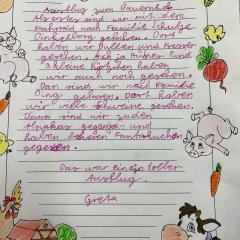 Ausflug zum Bauernhof
Als erstes sind wir mit dem
Fahrrad nach Familie Schulze
gefahren. Dort
haben wir Bullen und
gesehen. Ach ja Hühner und
3 kleine Kätzchen haben
wir auch noch gesehen.
Dan sind wir nach Familie
Ding gefahren dort haben
wir viele Schweine gesehen.
Dann sind wir zu den
Alpakas gegangen und
haben leckeren
gegessen.
Das war ein toller
Ausflug.
Greta